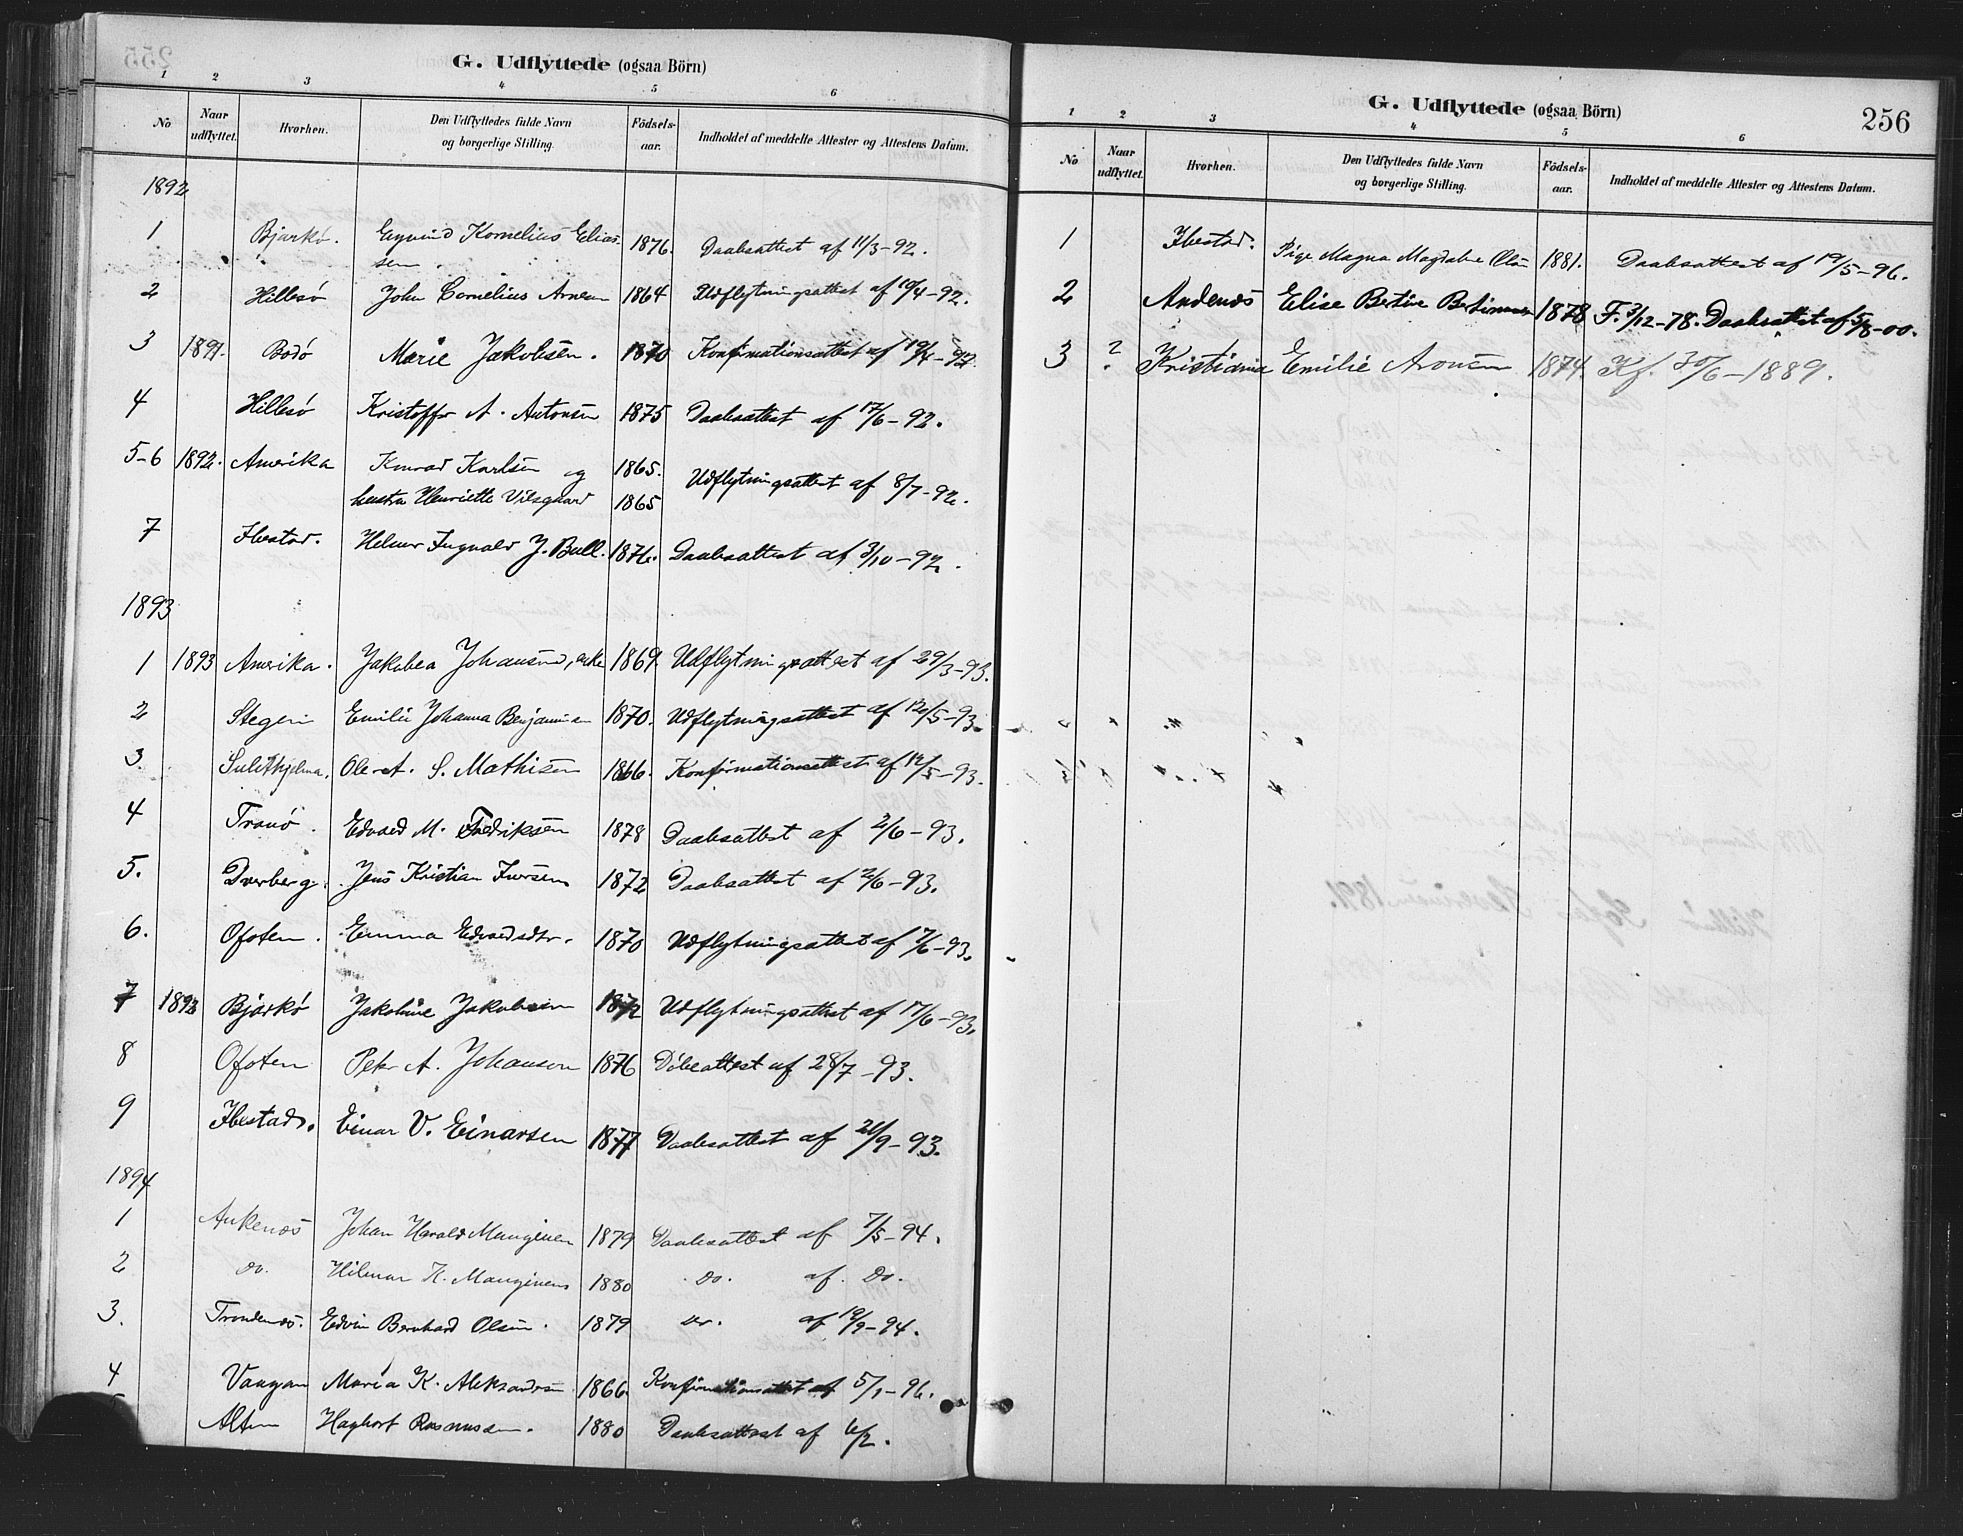 G. Udflyttede (ogsaa Börn)
1 2 3 4 5 6
No Naar udflyttet. Hvorhen. Den Udflyttedes fulde Navn og borgerlige Stilling. Födsels-aar. Indholdet af meddelte Attester og Attestens Datum.
1892
1 Bjarkö. Eyvind Kornelius Elias-
sen 1876. Daabsattest af 11/3-92.
2 Hillesö John Cornelius Arnesen 1864 Udflytningsattest af 19/4-92.
3 1891. Bodö Marie Jakobsen. 1870 Konfirmationsattest af 19/4-92
4 Hillesö Kristoffer A. Antonsen 1875 Daabsattest af 17/6-92.
5-6 1892. Amerika Konrad Karlsen og 1865.
hustru Henriette 1865 Udflytningsattest af 8/7-92.
7 Ibestad. Helmer Ingvald J. Bull. 1876. Daabsattest af 3/10-92.
1893
1 1893 Amerika. Jakobea Johansen, enke 1869 Udflytningsattest af 29/3-93.
2 Stegen Emilie Johanna Benjaminsen 1870. Udflytningsattest af 12/5-93.
3. Sulithjelma. Ole A. S. Mathisen 1866. Konfirmationsattest af 12/5-93.
4 Tranö. Edvard M. Fredriksen 1878 Daabsattest af 2/6-93.
5. Dverberg. Jens Kristian Iversen 1872 Daabsattest af 2/6-93.
6. Ofoten. Emma Edvardsdtr. 1870 Udflytningsattest af 7/6-93.
7 1893 Bjarkö Jakobine Jakobsen 1872 Udflytningsattest af 17/6-93.
8 Ofoten Peter A. Johansen 1876 Döbeattest af 28/7-93.
9 Ibestad. Einar V. Einarsen 1877 Daabsattest af 21/9-93.
1894
1 Ankenæs Johan Harald 1879 Daabsattest af 7/5-94.
2 do. Hilmar H. 1880 do. af. do.
3. Trondenæs. Edvin Bernhard Olsen. 1879 do. af 19/9-94.
4 Vaagan Maria K. Aleksandersen 1866. Konfirmationsattest af 5/1-96.
Alten Hagbart Rasmussen. 1880 Daabsattest af 6/2.
G. Udflyttede (ogsaa Börn) 256
1 2 3 4 5 6
No Naar udflyttet. Hvorhen. Den Udflyttedes fulde Navn og borgerlige Stilling. Födsels-aar. Indholdet af meddelte Attester og Attestens Datum.
1 Ibestad. Pige Magna Magdalene Olsen 1881. Daabsattest af 19/5-96.
2 Andenæs Elise Bertine Bertinussen 1878 F. 3/12-78. Daabsattest af 5/8-00.
3 ? Kristiania Emilie Aronsen 1874. Kf. 30/6-1889.